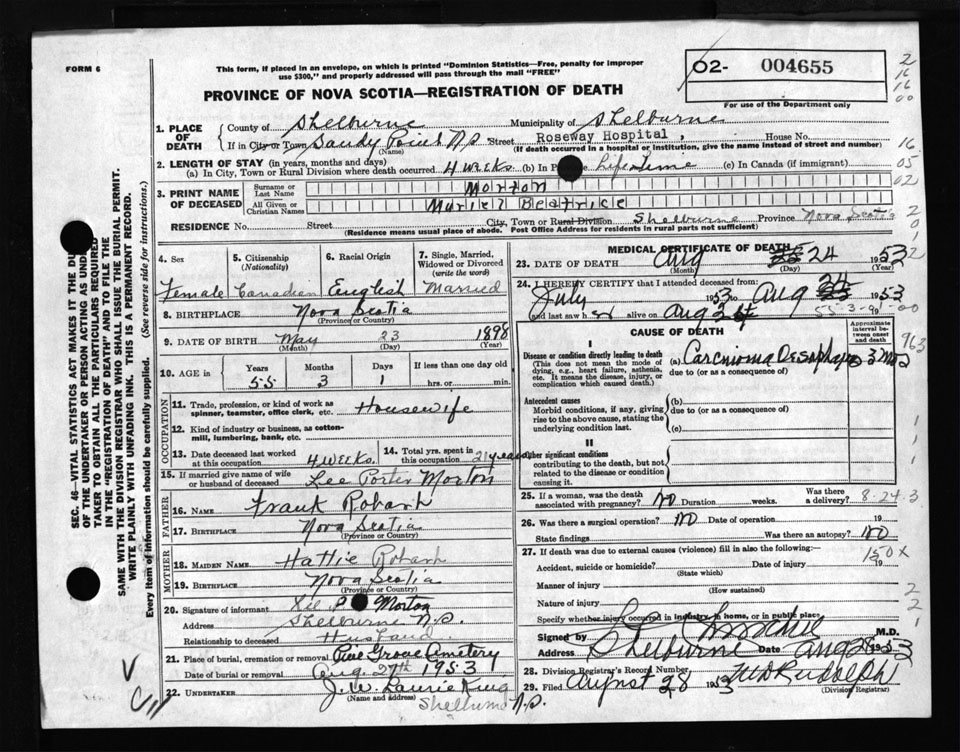 FORM 6
This form, if placed in an envelope, on which is printed "Dominion Statistics—Free, penalty for improper
use $300," and properly addressed will pass through the mail "FREE"
O2- 004655
For use of the Department only
PROVINCE OF NOVA SCOTIA—REGISTRATION OF DEATH
1. PLACE OF DEATH
County of Shelburne Municipality of Shelburne
If in City or Town Sandy Point N.S Street Roseway Hospital, House No.
(Name) (If death occurred in a hospital or institution, give the name instead of street and number)
2. LENGTH OF STAY (in years, months and days)
(a) In City, Town or Rural Division where death occurred 4 weeks (b) In P Life Time (c) In Canada (if immigrant)
3. PRINT NAME OF DECEASED
Surname or Last Name Morton
All Given or Christian Names Muriel Beatrice
RESIDENCE No. Street City, Town or Rural Division Shelburne Province Nova Scotia
(Residence means usual place of abode. Post Office Address for residents in rural parts not sufficient)
SEC. 46—VITAL STATISTICS ACT MAKES IT THE DU
OF THE UNDERTAKER OR PERSON ACTING AS UND
TAKER TO OBTAIN ALL THE PARTICULARS REQUIRED
IN THE "REGISTRATION OF DEATH" AND TO FILE THE
SAME WITH THE DIVISION REGISTRAR WHO SHALL ISSUE THE BURIAL PERMIT.
WRITE PLAINLY WITH UNFADING INK. THIS IS A PERMANENT RECORD.
Every item of information should be carefully supplied. (See reverse side for instructions.)
4. Sex
Female
5. Citizenship
(Nationality)
Canadian
6. Racial Origin
English
7. Single, Married, Widowed or Divorced
(write the word)
Married
8. BIRTHPLACE Nova Scotia
(Province or Country)
9. DATE OF BIRTH May 23 1898
(Month) (Day) (Year)
10. AGE in Years Months Days If less than one day old
55 3 1 hrs. or min.
OCCUPATION
11. Trade, profession, or kind of work as
spinner, teamster, office clerk, etc. Housewife
12. Kind of industry or business, as cotton-
mill, lumbering, bank, etc.
13. Date deceased last worked
at this occupation 4 weeks
14. Total yrs. spent in
this occupation 21 years
15. If married give name of wife
or husband of deceased Lee Porter Morton
FATHER
16. NAME Frank Robart
17. BIRTHPLACE Nova Scotia
(Province or Country)
MOTHER
18. MAIDEN NAME Hattie Robart
19. BIRTHPLACE Nova Scotia
(Province or Country)
20. Signature of informant P Morton
Address Shelburne N.S.
Relationship to deceased Husband
21. Place of burial, cremation or removal Pine Grove Cemetery
Date of burial or removal Aug. 27th 1953
22. UNDERTAKER J. W. Laurie King
(Name and address)
Shelburne N.S.
MEDICAL CERTIFICATE OF DEATH
23. DATE OF DEATH Aug 24 1953
(Month) (Day) (Year)
24. I HEREBY CERTIFY that I attended deceased from:
July 1953 to Aug 24 1953
and last saw h er alive on Aug 24
55-3-01-00
CAUSE OF DEATH
Approximate interval between onset and death
I
Disease or condition directly leading to death
(This does not mean the mode of
dying, e.g., heart failure, asthenia,
etc. It means the disease, injury, or
complication which caused death.)
(a) Carcnioma Oesophagus 3 mos
due to (or as a consequence of)
Antecedent causes
Morbid conditions, if any, giving
rise to the above cause, stating the
underlying condition last.
(b)
due to (or as a consequence of)
(c)
II
Other significant conditions
contributing to the death, but not
related to the disease or condition
causing it.
25. If a woman, was the death
associated with pregnancy? NO Duration weeks. Was there a delivery?
8-24-3
26. Was there a surgical operation? NO Date of operation 19
State findings Was there an autopsy? NO
27. If death was due to external causes (violence) fill in also the following:—
150X
Accident, suicide or homicide? Date of injury 19
(State which)
Manner of injury
(How sustained)
Nature of injury
Specify whether injury occurred in industry, in home, or in public place
Signed by M.D.
Address Shelburne Date Aug 28 1953
28. Division Registrar's Record Number
29. Filed August 28 1953 M D Rudolph
(Division Registrar)